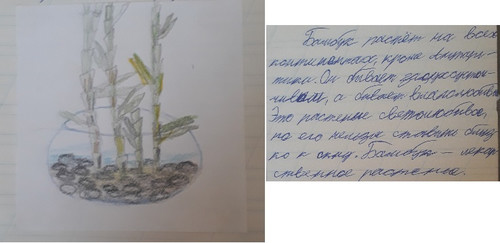 Бамбук растёт на всех
континентах, кроме Антарк-
тики. Он бывает засухоустой-
чивым, а бывает влаголюбивым.
Это растение светолюбиво,
но его нельзя ставить близ-
ко к окну. Бамбук – лекар-
ственное растение.